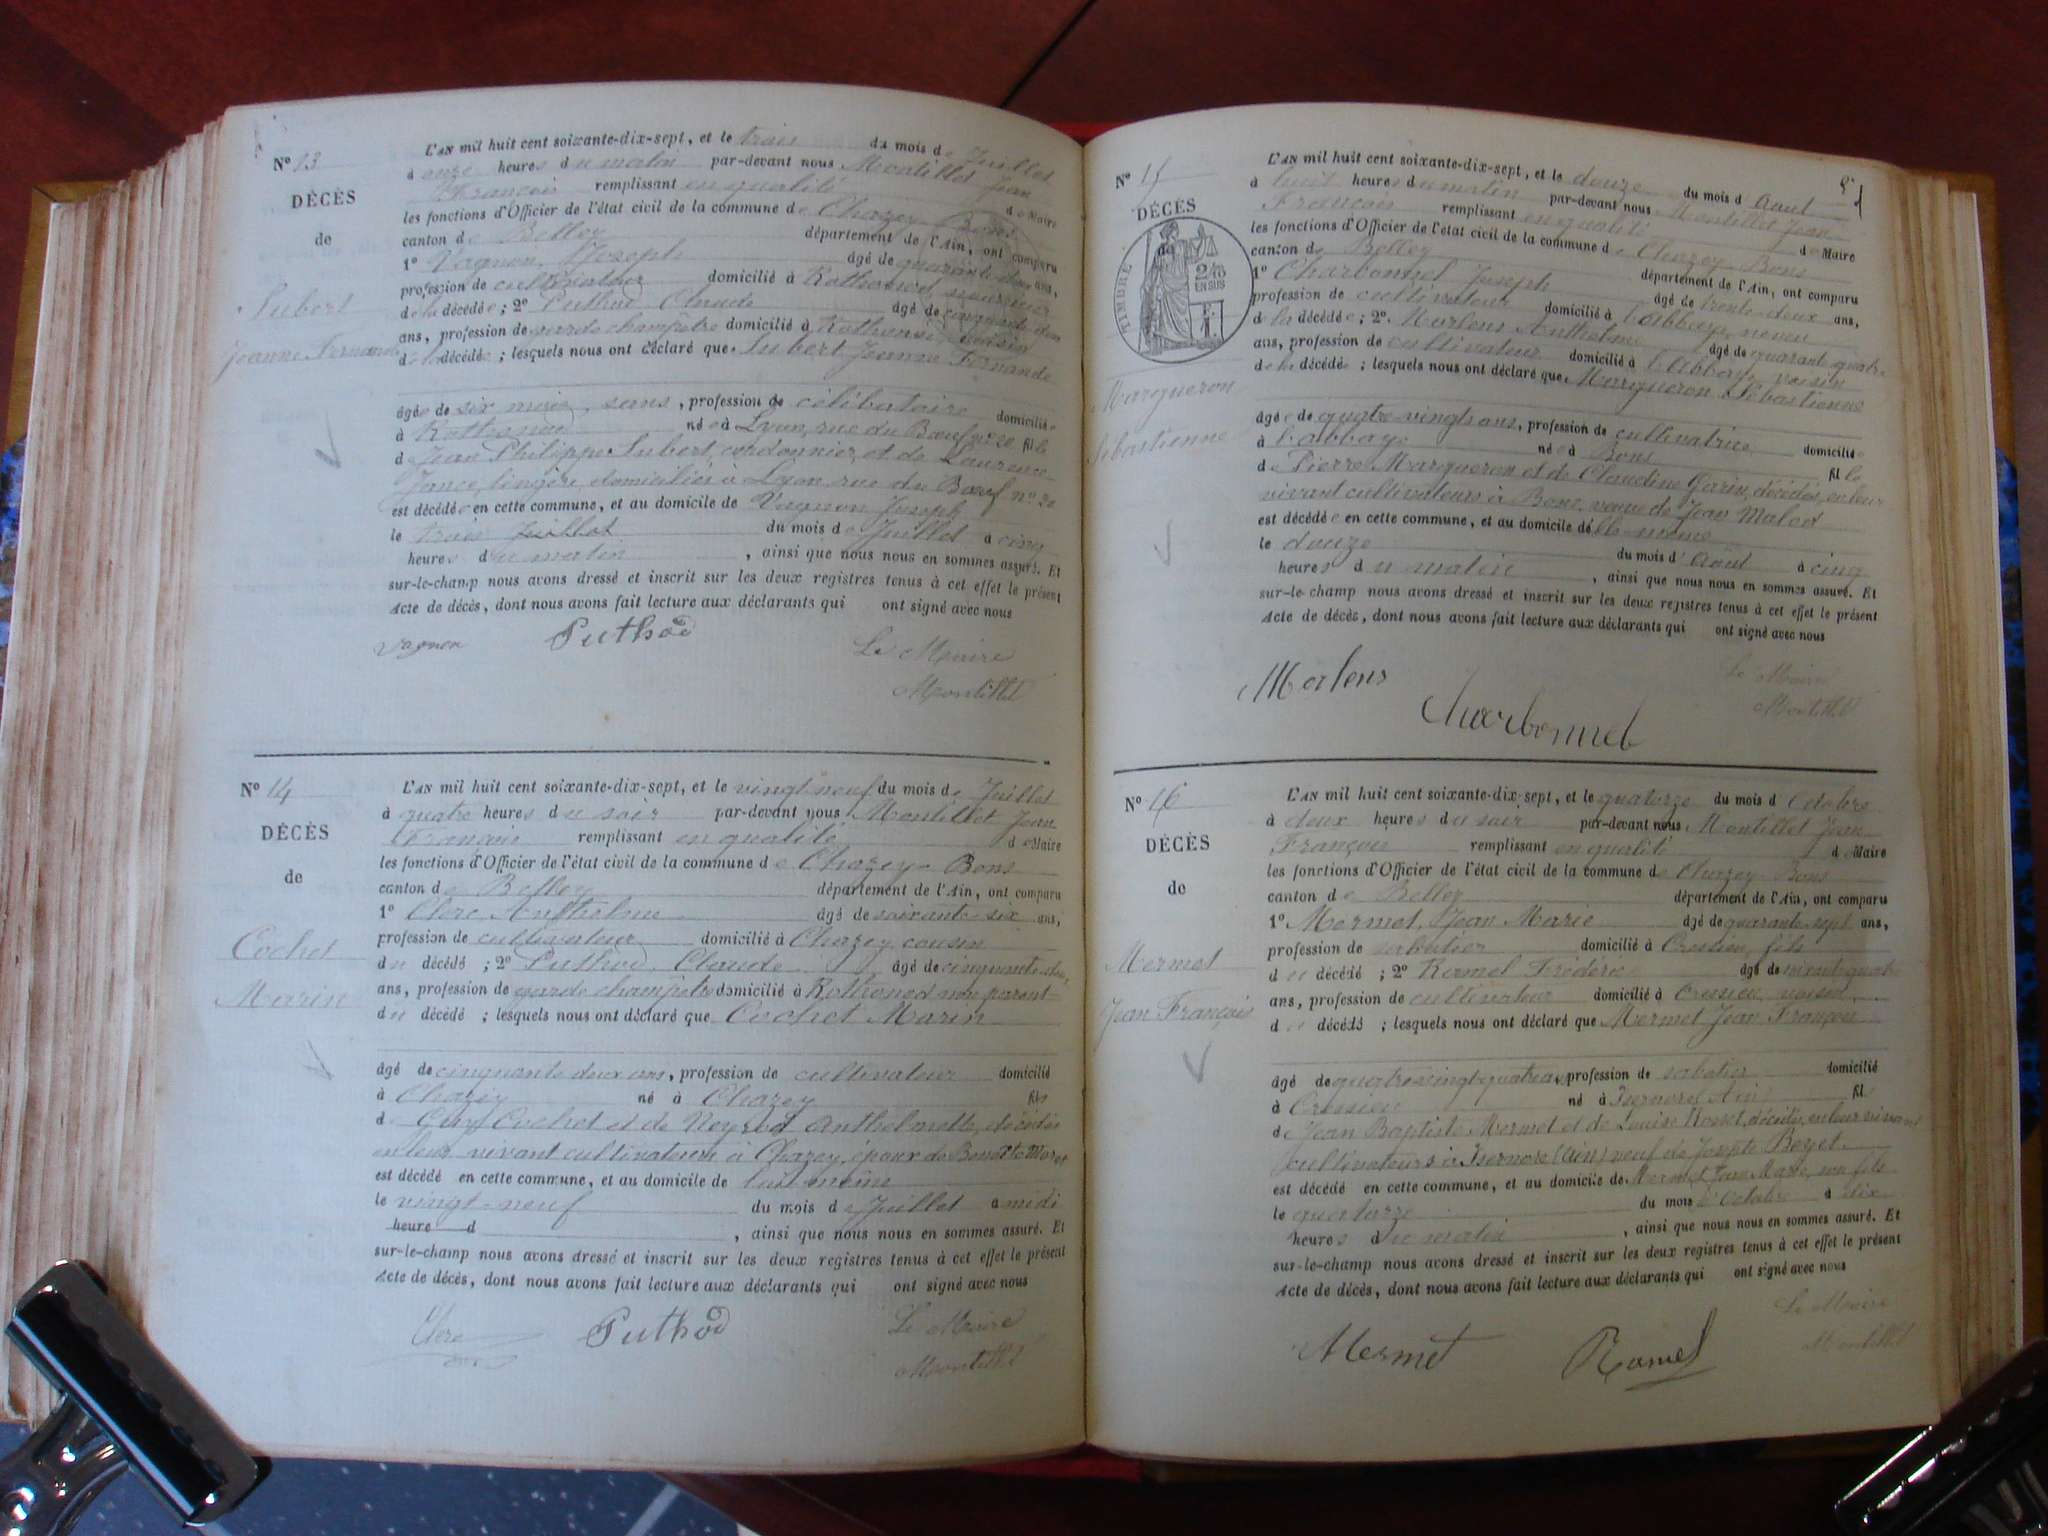 N° 13
DÉCÈS
de
Subert
Jeanne Fernande
L'AN mil huit cent soixante-dix-sept, et le trois du mois de Juillet
à onze heures du matin par-devant nous Montillet Jean
François remplissant en qualité de Maire
les fonctions d'Officier de l'état civil de la commune de Chazey-Bons
canton de Belley département de l'Ain, ont comparu
1° Vagnon Joseph âgé de quarante deux ans,
profession de cultivateur domicilié à Rothonod
de la décédée ; 2° Puthod Claude âgé de cinquante deux
ans, profession de garde champêtre domicilié à Rothonod, voisin
de la décédée ; lesquels nous ont déclaré que Subert Jeanne Fernande
âgée de six mois, sans, profession de célibataire domiciliée
à Rothonod née à Lyon, rue du Bœuf n° 20 fille
de Jean Philippe Subert, cordonnier, et de Laurence
lingère, domiciliés à Lyon rue du Bœuf n° 20
est décédée en cette commune, et au domicile de Vagnon Joseph
le trois Juillet du mois de Juillet à cinq
heures du matin , ainsi que nous nous en sommes assuré. Et
sur-le-champ nous avons dressé et inscrit sur les deux registres tenus à cet effet le présent
Acte de décès, dont nous avons fait lecture aux déclarants qui ont signé avec nous
Vagnon Puthod Le Maire
Montillet
N° 14
DÉCÈS
de
Cochet
Marin
L'AN mil huit cent soixante-dix-sept, et le vingt neuf du mois de Juillet
à quatre heures du soir par-devant nous Montillet Jean
François remplissant en qualité de Maire
les fonctions d'Officier de l'état civil de la commune de Chazey-Bons
canton de Belley département de l'Ain, ont comparu
1° Clerc Anthelme âgé de soixante six ans,
profession de cultivateur domicilié à Chazey, cousin
du décédé ; 2° Puthod Claude âgé de cinquante deux
ans, profession de garde champêtre domicilié à Rothonod non parent
du décédé ; lesquels nous ont déclaré que Cochet Marin
âgé de cinquante deux ans, profession de cultivateur domicilié
à Chazey né à Chazey fils
de Guy Cochet et de Neyrod Anthelmette, décédés
en leur vivant cultivateurs à Chazey, époux de Benoîte Moret
est décédé en cette commune, et au domicile de lui-même
le vingt-neuf du mois de Juillet à midi
heure d , ainsi que nous nous en sommes assuré. Et
sur-le-champ nous avons dressé et inscrit sur les deux registres tenus à cet effet le présent
Acte de décès, dont nous avons fait lecture aux déclarants qui ont signé avec nous
Clerc Puthod Le Maire
Montillet
8
N° 15
DÉCÈS
de
TIMBRE
2/10
EN SUS
Margueron
Sébastienne
L'AN mil huit cent soixante-dix-sept, et le douze du mois d'Août
à huit heures du matin par-devant nous Montillet Jean
François remplissant en qualité de Maire
les fonctions d'Officier de l'état civil de la commune de Chazey-Bons
canton de Belley département de l'Ain, ont comparu
1° Charbonnel Joseph âgé de trente deux ans,
profession de cultivateur domicilié à l'abbaye, neveu
de la décédée ; 2° Morlens Anthelme âgé de quarante quatre
ans, profession de cultivateur domicilié à l'abbaye, voisin
de la décédée ; lesquels nous ont déclaré que Margueron Sébastienne
âgée de quatre vingts ans, profession de cultivatrice domiciliée
à l'abbaye née à Bons fille
de Pierre Margueron et de Claudine Garin, décédés, en leur
vivant cultivateurs à Bons, veuve de Jean Malod
est décédée en cette commune, et au domicile d'elle-même
le douze du mois d'Août à cinq
heures du matin , ainsi que nous nous en sommes assuré. Et
sur-le-champ nous avons dressé et inscrit sur les deux registres tenus à cet effet le présent
Acte de décès, dont nous avons fait lecture aux déclarants qui ont signé avec nous
Morlens Charbonnel Le Maire
Montillet
N° 16
DÉCÈS
de
Mermet
Jean François
L'AN mil huit cent soixante-dix-sept, et le quatorze du mois d'Octobre
à deux heures du soir par-devant nous Montillet Jean
François remplissant en qualité de Maire
les fonctions d'Officier de l'état civil de la commune de Chazey-Bons
canton de Belley département de l'Ain, ont comparu
1° Mermet, Jean Marie âgé de quarante sept ans,
profession de sabotier domicilié à Cressieu, fils
du décédé ; 2° Ramel Frédéric âgé de
ans, profession de cultivateur domicilié à Cressieu, voisin
du décédé ; lesquels nous ont déclaré que Mermet Jean François
âgé de quatre-vingt-quatre ans profession de sabotier domicilié
à Cressieu né à Isernore (Ain) fils
de Jean Baptiste Mermet et de Louise décédés, en leur vivant
cultivateurs à Isernore (Ain) veuf de Josephte
est décédé en cette commune, et au domicile de Mermet Jean Marie, son fils
le quatorze du mois d'Octobre à dix
heures du matin , ainsi que nous nous en sommes assuré. Et
sur-le-champ nous avons dressé et inscrit sur les deux registres tenus à cet effet le présent
Acte de décès, dont nous avons fait lecture aux déclarants qui ont signé avec nous
Mermet Ramel Le Maire
Montillet